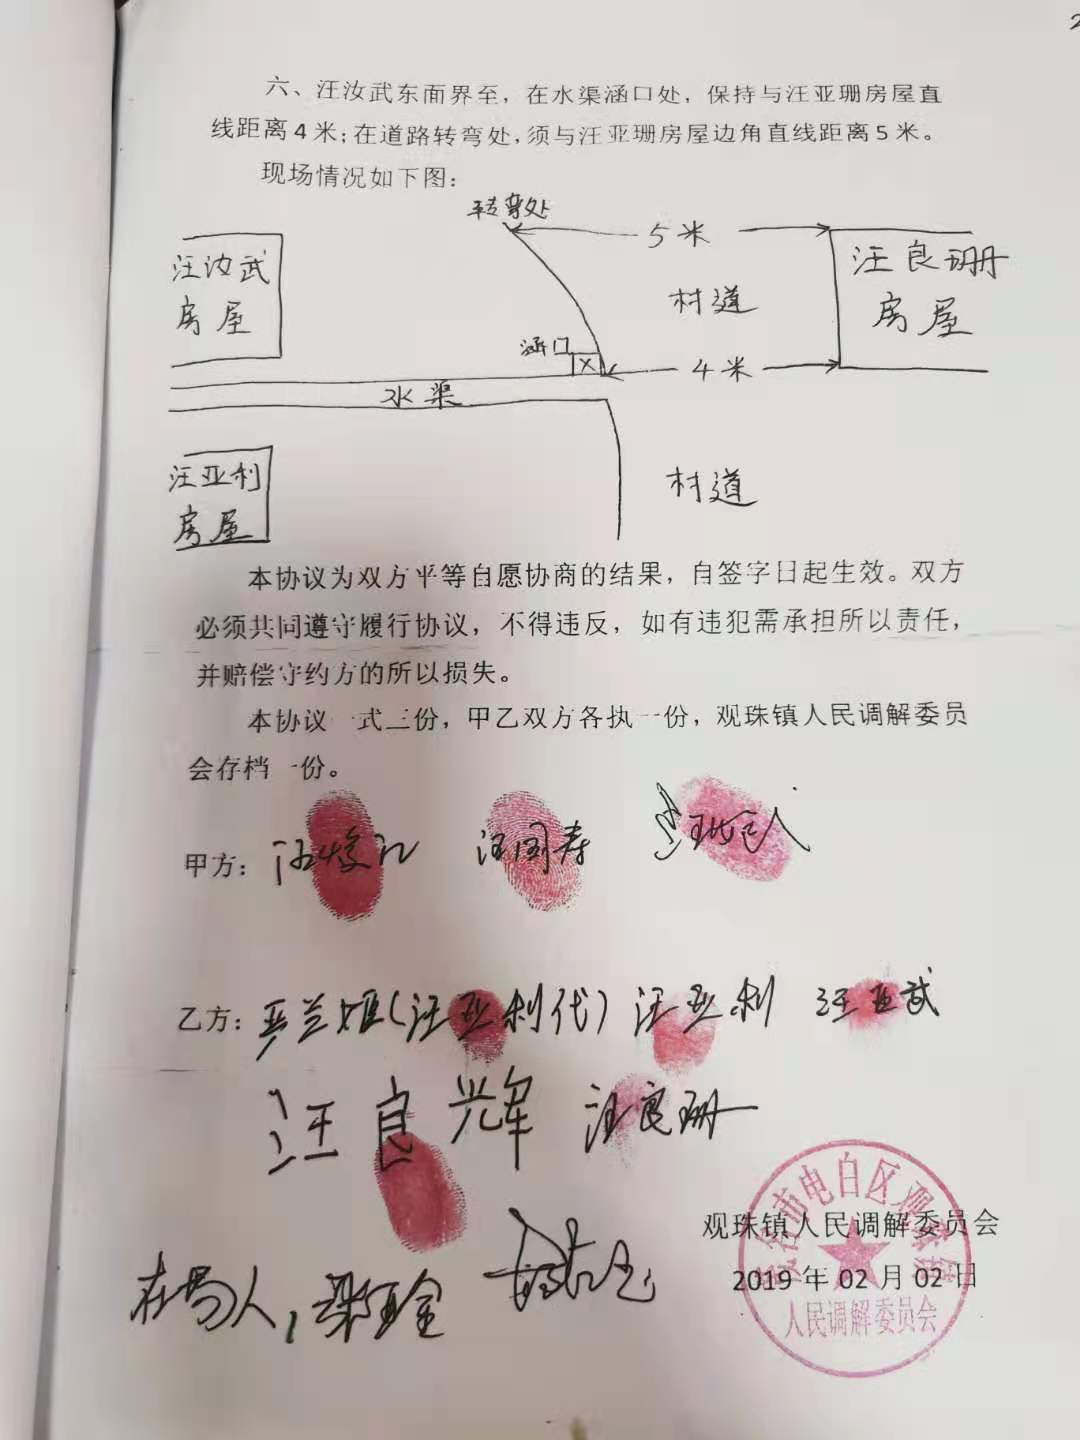 2
六、汪汝武东面界至，在水渠涵口处，保持与汪亚珊房屋直
线距离4米；在道路转弯处，须与汪亚珊房屋边角直线距离5米。
现场情况如下图：
转弯处
5米
汪汝武
房屋
汪良珊
房屋
村道
涵口
4米
水渠
汪亚利
房屋
村道
本协议为双方平等自愿协商的结果，自签字日起生效。双方
必须共同遵守履行协议，不得违反，如有违犯需承担所以责任，
并赔偿守约方的所以损失。
本协议一式三份，甲乙双方各执一份，观珠镇人民调解委员
会存档一份。
甲方：
汪国寿
乙方：
(汪亚利代) 汪亚利 汪亚武
汪良辉 汪良珊
市电白区观珠镇
人民调解委员会
观珠镇人民调解委员会
2019年02月02日
在场人，